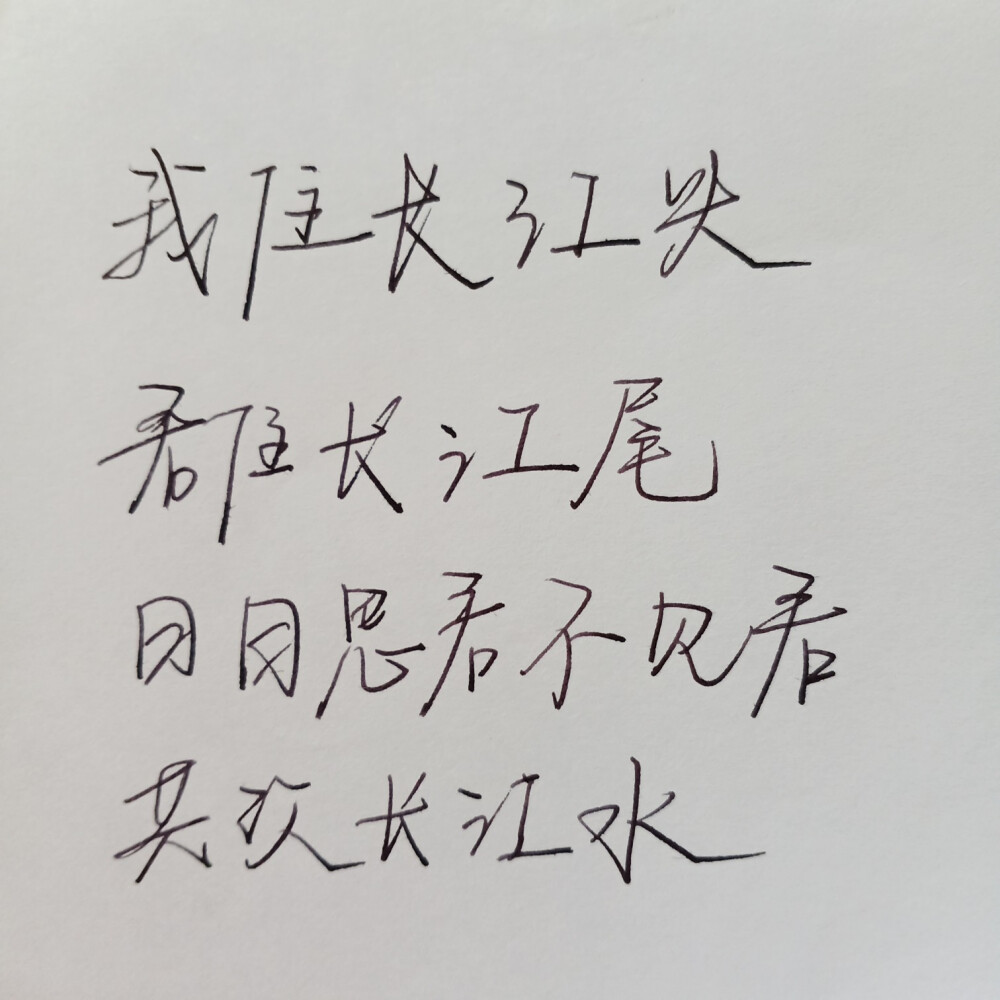 我住长江头
君住长江尾
日日思君不见君
共饮长江水